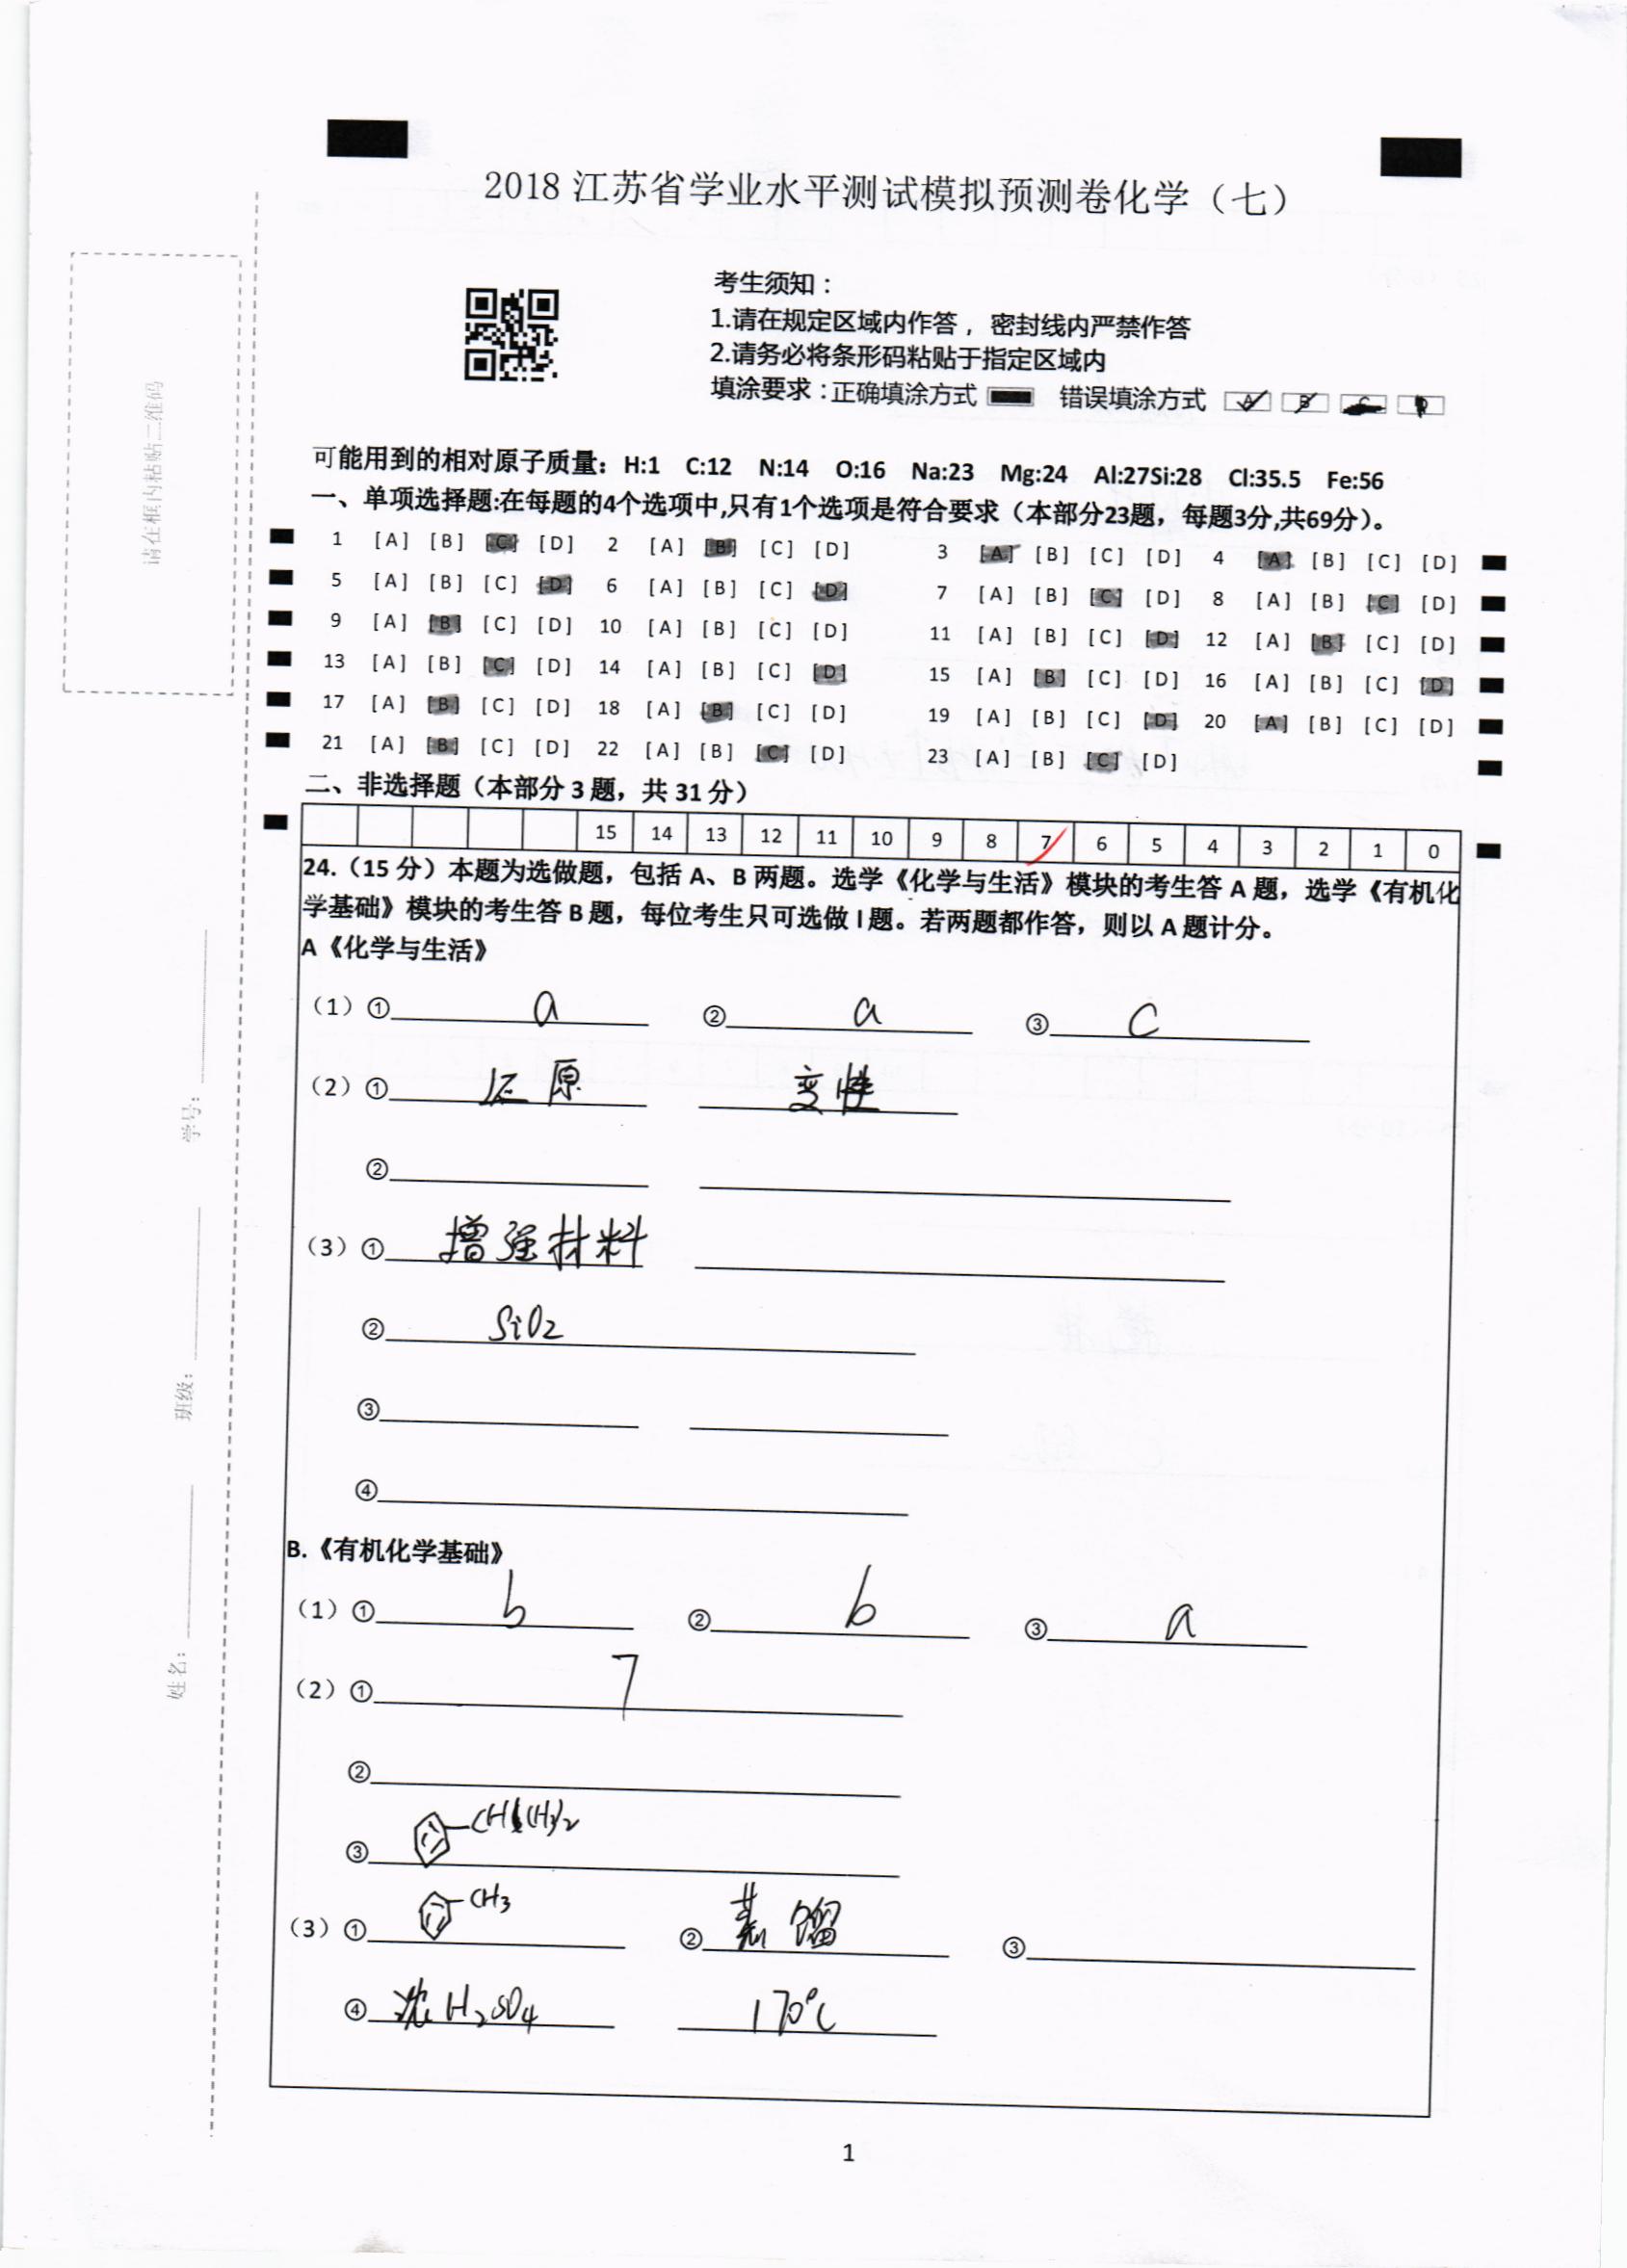 2018 江苏省学业水平测试模拟预测卷化学（七）
考生须知：
1.请在规定区域内作答，密封线内严禁作答
2.请务必将条形码粘贴于指定区域内
填涂要求：正确填涂方式 错误填涂方式 A B C D
可能用到的相对原子质量：H:1 C:12 N:14 O:16 Na:23 Mg:24 Al:27Si:28 Cl:35.5 Fe:56
一、单项选择题:在每题的4个选项中,只有1个选项是符合要求（本部分23题，每题3分,共69分）。
1 [A] [B] [C] [D] 2 [A] [B] [C] [D] 3 [A] [B] [C] [D] 4 [A] [B] [C] [D]
5 [A] [B] [C] [D] 6 [A] [B] [C] [D] 7 [A] [B] [C] [D] 8 [A] [B] [C] [D]
9 [A] [B] [C] [D] 10 [A] [B] [C] [D] 11 [A] [B] [C] [D] 12 [A] [B] [C] [D]
13 [A] [B] [C] [D] 14 [A] [B] [C] [D] 15 [A] [B] [C] [D] 16 [A] [B] [C] [D]
17 [A] [B] [C] [D] 18 [A] [B] [C] [D] 19 [A] [B] [C] [D] 20 [A] [B] [C] [D]
21 [A] [B] [C] [D] 22 [A] [B] [C] [D] 23 [A] [B] [C] [D]
二、非选择题（本部分 3 题，共 31 分）
15 14 13 12 11 10 9 8 7 6 5 4 3 2 1 0
24.（15 分）本题为选做题，包括 A、B 两题。选学《化学与生活》模块的考生答 A 题，选学《有机化
学基础》模块的考生答 B 题，每位考生只可选做 l 题。若两题都作答，则以 A 题计分。
A《化学与生活》
（1）① a ② a ③ c
（2）① 还原 变性
②
（3）① 增强材料
② SiO2
③
④
B.《有机化学基础》
（1）① b ② b ③ a
（2）① 7
②
③ CH(CH3)2
（3）① CH3 ② 蒸馏 ③
④ 浓H2SO4 170℃
1
请在框内粘贴二维码
学号：
班级：
姓名：